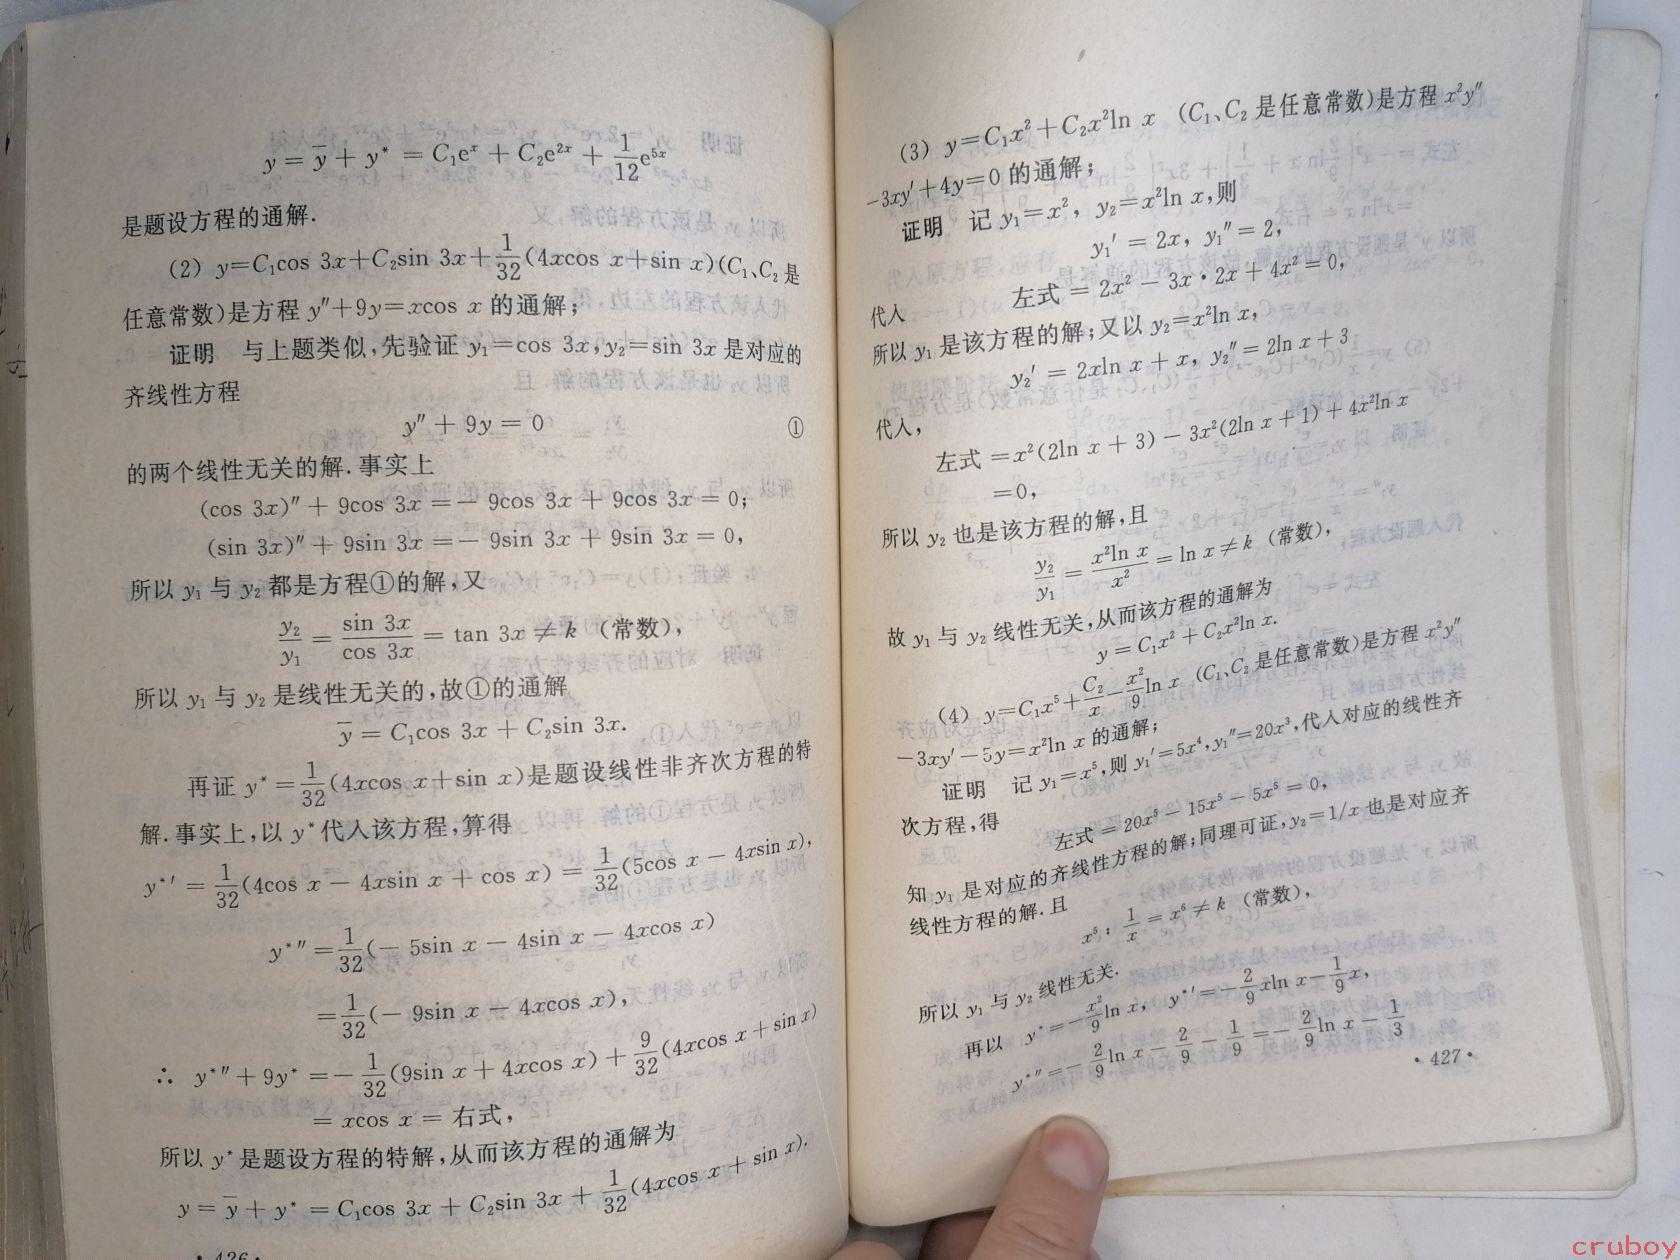 y = ȳ + y* = C₁eˣ + C₂e²ˣ + 1/12 e⁵ˣ
是题设方程的通解.
(2) y=C₁cos 3x+C₂sin 3x+1/32(4xcos x+sin x)(C₁、C₂是
任意常数)是方程 y″+9y=xcos x 的通解;
证明 与上题类似,先验证 y₁=cos 3x,y₂=sin 3x 是对应的
齐线性方程
y″ + 9y = 0 ①
的两个线性无关的解.事实上
(cos 3x)″ + 9cos 3x = − 9cos 3x + 9cos 3x = 0;
(sin 3x)″ + 9sin 3x = − 9sin 3x + 9sin 3x = 0,
所以 y₁ 与 y₂ 都是方程①的解,又
y₂/y₁ = sin 3x/cos 3x = tan 3x ≠ k (常数),
所以 y₁ 与 y₂ 是线性无关的,故①的通解
ȳ = C₁cos 3x + C₂sin 3x.
再证 y*=1/32(4xcos x+sin x)是题设线性非齐次方程的特
解.事实上,以 y* 代入该方程,算得
y*′ = 1/32(4cos x − 4xsin x + cos x) = 1/32(5cos x − 4xsin x),
y*″ = 1/32(− 5sin x − 4sin x − 4xcos x)
= 1/32(− 9sin x − 4xcos x),
∴ y*″ + 9y* = − 1/32(9sin x + 4xcos x) + 9/32(4xcos x + sin x)
= xcos x = 右式,
所以 y* 是题设方程的特解,从而该方程的通解为
y = ȳ + y* = C₁cos 3x + C₂sin 3x + 1/32(4xcos x + sin x).
· 426 ·
(3) y=C₁x²+C₂x²ln x (C₁、C₂ 是任意常数)是方程 x²y″
−3xy′+4y=0 的通解;
证明 记 y₁=x², y₂=x²ln x,则
y₁′ = 2x, y₁″ = 2,
代入 左式 = 2x² − 3x · 2x + 4x² = 0,
所以 y₁ 是该方程的解;又以 y₂=x²ln x,
y₂′ = 2xln x + x, y₂″ = 2ln x + 3
代入,
左式 = x²(2ln x + 3) − 3x²(2ln x + 1) + 4x²ln x
=0,
所以 y₂ 也是该方程的解,且
y₂/y₁ = x²ln x/x² = ln x ≠ k (常数),
故 y₁ 与 y₂ 线性无关,从而该方程的通解为
y = C₁x² + C₂x²ln x.
(4) y=C₁x⁵+C₂/x−x²/9 ln x (C₁、C₂ 是任意常数)是方程 x²y″
−3xy′−5y=x²ln x 的通解;
证明 记 y₁=x⁵,则 y₁′=5x⁴,y₁″=20x³,代入对应的线性齐
次方程,得
左式 = 20x⁵ − 15x⁵ − 5x⁵ = 0,
知 y₁ 是对应的齐线性方程的解;同理可证,y₂=1/x 也是对应齐
线性方程的解.且
x⁵ : 1/x = x⁶ ≠ k (常数),
所以 y₁ 与 y₂ 线性无关.
再以 y*=−x²/9 ln x, y*′=−2/9 xln x−1/9 x,
y*″=−2/9 ln x−2/9−1/9=−2/9 ln x−1/3
· 427 ·
cruboy